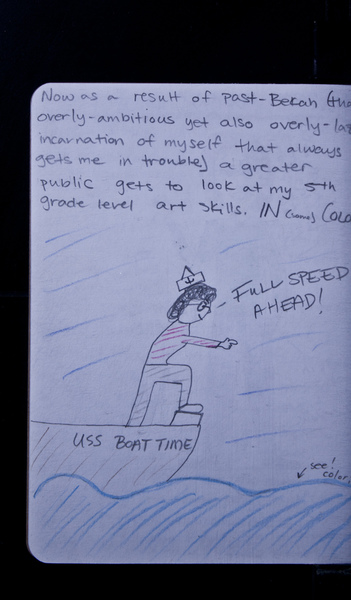 Now as a result of past-Bekah (the
overly-ambitious yet also overly-
incarnation of myself that always
gets me in trouble) a greater
public gets to look at my 5th
grade level art skills. IN (some)
FULL SPEED
AHEAD!
USS BOAT TIME
see!
color